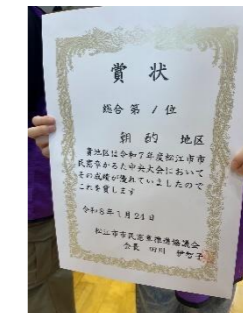 賞状
総合第1位
朝酌 地区
貴地区は令和7年度松江市市
民憲章かるた中央大会において
その成績が優れていましたので
これを賞します
令和8年1月24日
松江市市民憲章推進協議会
会長